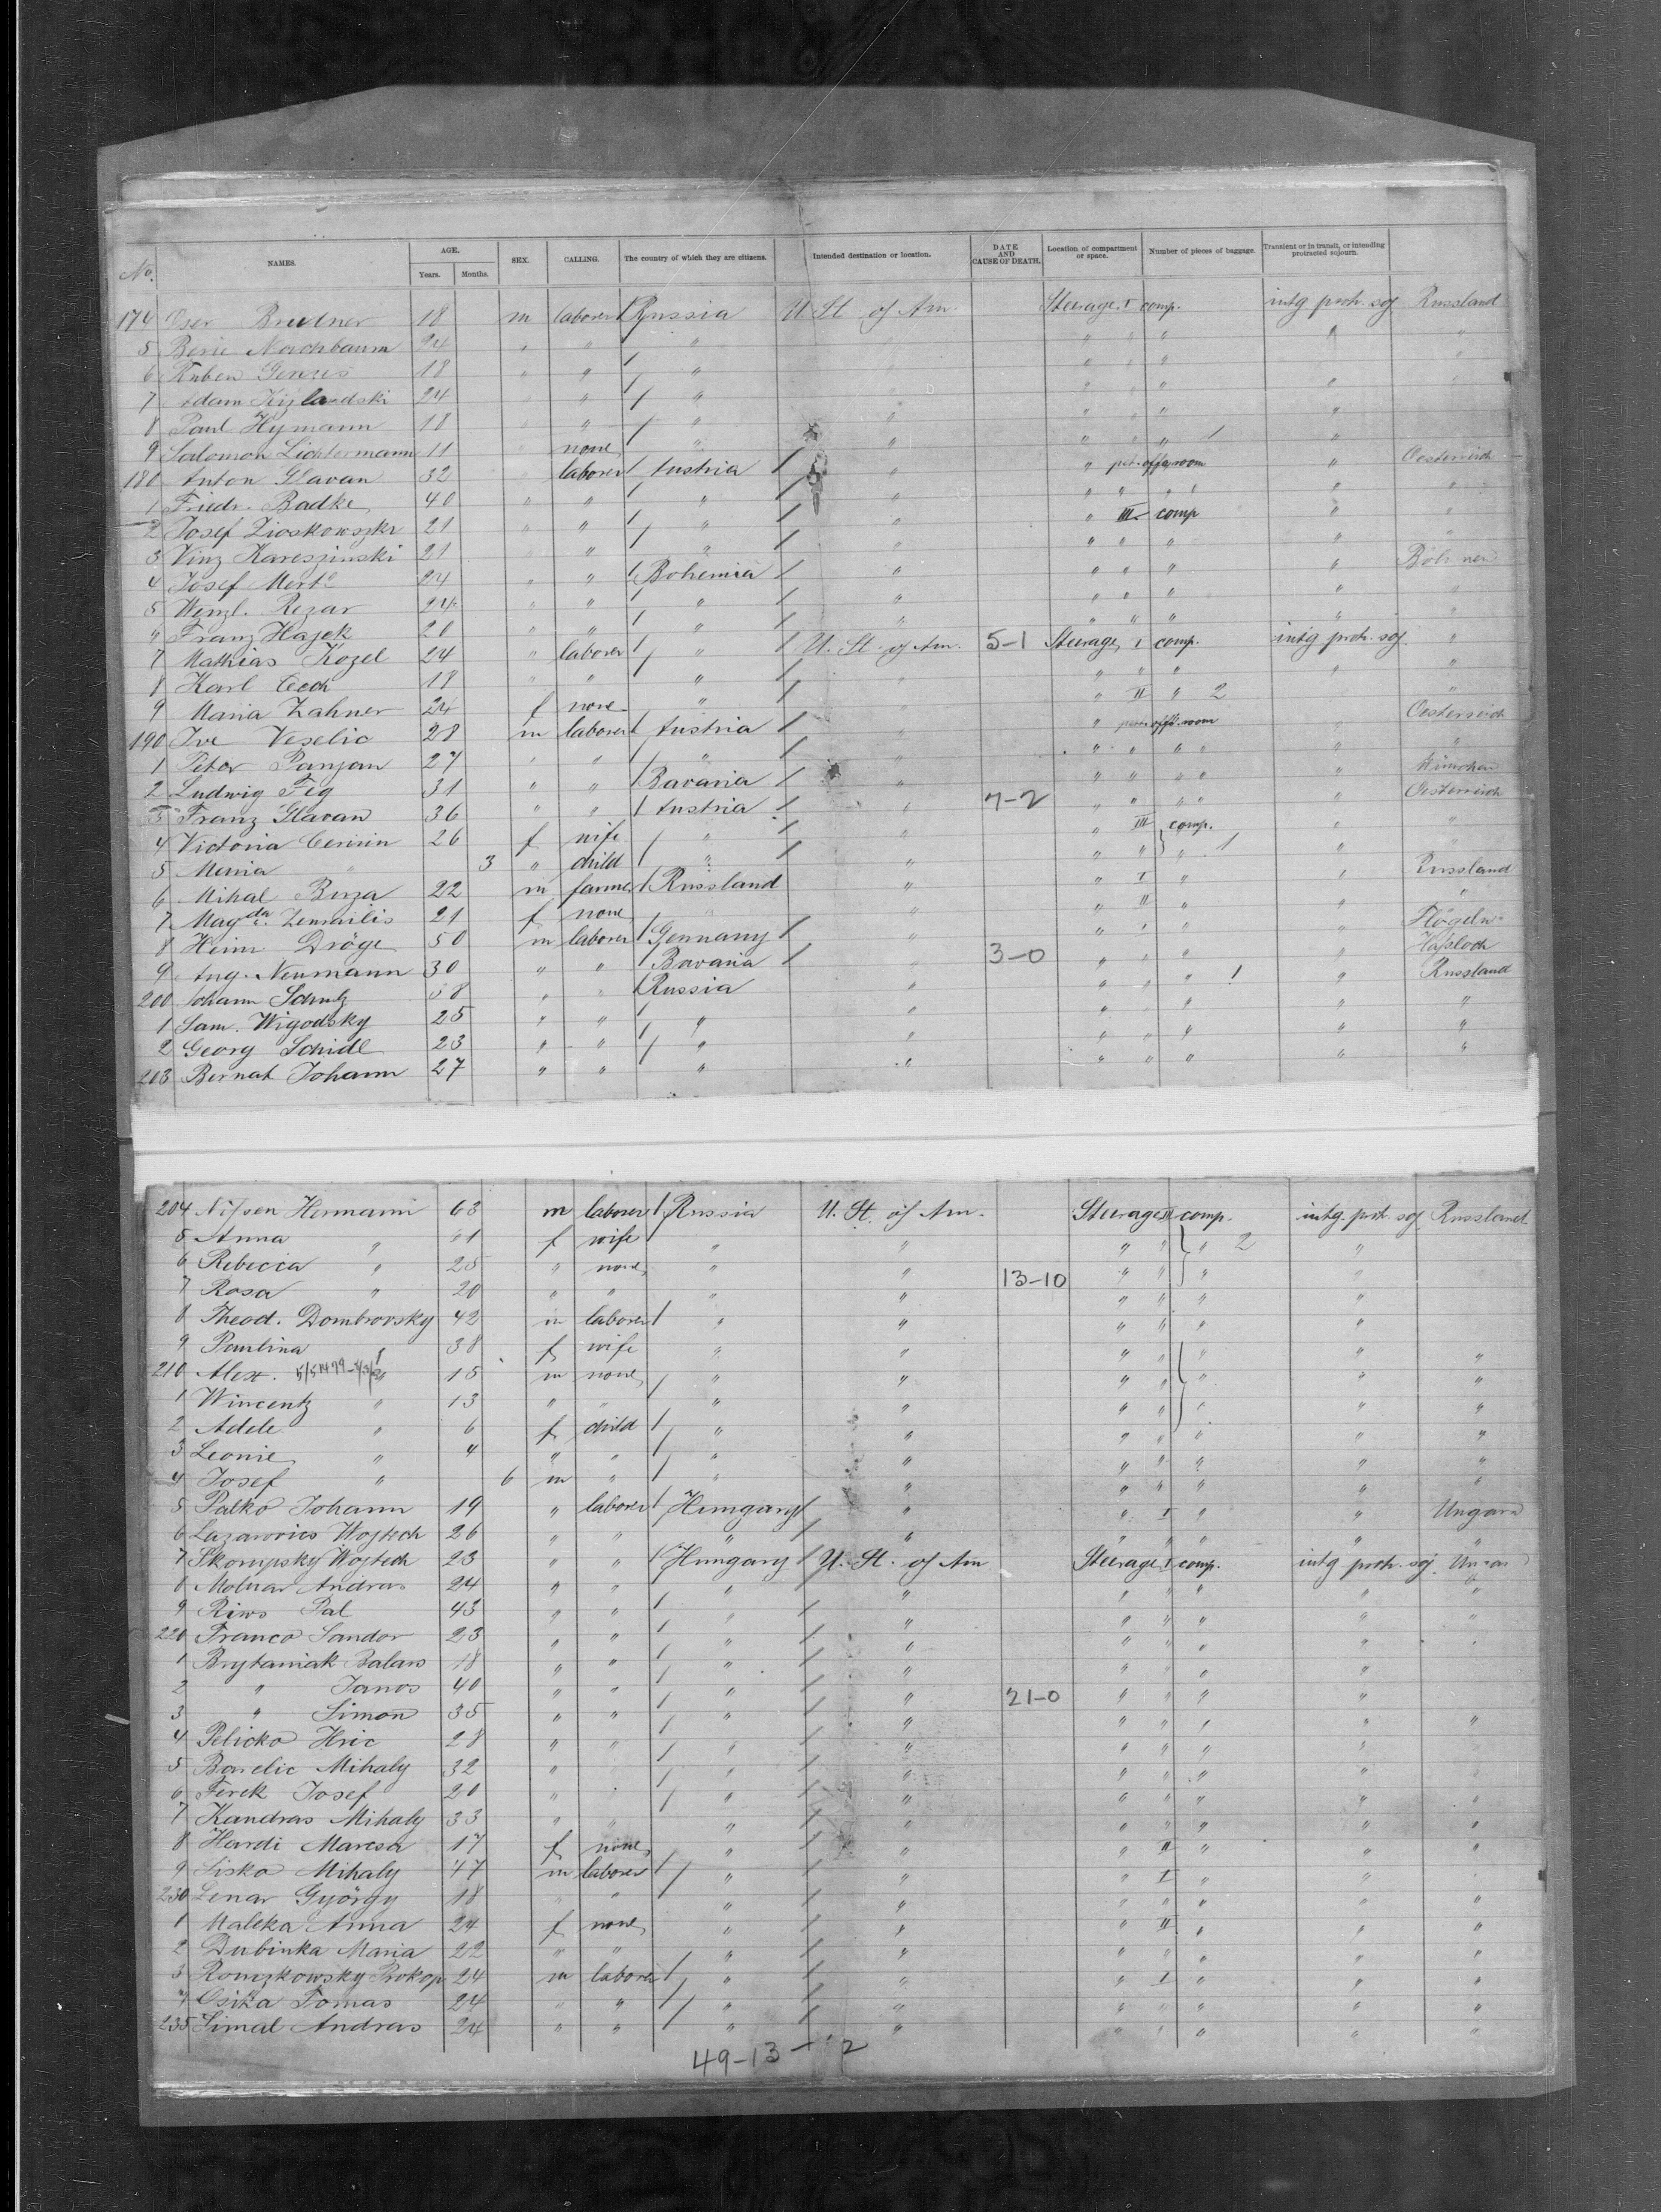 No. NAMES. AGE. Years. Months. SEX. CALLING. The country of which they are citizens. Intended destination or location. DATE AND CAUSE OF DEATH. Location of compartment or space. Number of pieces of baggage. Transient or in transit, or intending protracted sojourn.
174 Oser Brudner 18 m laborer Russia U. St. of Am. Steerage I comp. intg proh. soj Russland
5 Berie Nachbaum 24 " " " " " " " "
6 Ruben 18 " " " " " " "
7 Adam 24 " " " " " "
8 Paul Hymann 18 " " " " " " "
9 Salomon Lichtermann 11 none " " " " " 1 "
180 Anton Glavan 32 laborer Austria " " room " Oesterreich
1 Friedr. Badke 40 " " " " " " " " " "
2 Josef 21 " " " " " III comp " "
3 Vinz Kareszinski 21 " " " " " " "
4 Josef 24 " " Bohemia " " " " "
5 Wenzl. Rezar 24 " " " " " " " " "
" Franz Hajek 20 " " " " " " " "
7 Mathias Kozel 24 " laborer " U. St. of Am. 5-1 Steerage, I comp. intg proh. soj. "
8 Karl Cech 18 " " " " " " " " "
9 Maria Zahner 24 f none " " " II " 2 "
190 Ive Veselic 28 m laborer Austria " " room " Oesterreich
1 Peter Panjan 27 " " " " " " " " " "
2 Ludwig Feg 31 " " Bavaria " " " " " " München
3 Franz Glavan 36 " " Austria " 7-2 " " " " " Oesterreich
4 Victoria 26 f wife " " " III comp. " "
5 Maria " 3 " child " " " " " 1 " "
6 Mihal Buza 22 m farmer Russland " " I " " Russland
7 Magda. Zemailis 21 f none " " " II " " "
8 Heinr Dröge 50 m laborer Germany " " I " " Flögeln
9 Aug. Neumann 30 " " Bavaria " 3-0 " " " " Hassloch
200 Johann Schulz 58 " " Russia " " " " 1 " Russland
1 Sam. Wigodsky 25 " " " " " " " " "
2 Georg Schidl 23 " " " " " " " " "
203 Bernat Johann 27 " " " " " " " " "
204 Nissen Hermann 63 m laborer Russia U. St. of Am. Steerage II comp. intg. proh. soj Russland
5 Anna " 61 f wife " " " " " 2 "
6 Rebecca " 25 " none " " 13-10 " " " "
7 Rosa " 20 " " " " " " " "
8 Theod. Dombrovsky 42 m laborer " " " " " "
9 Paulina " 38 f wife " " " " " " "
210 Alex. " 15 m none " " " " " " "
1 Wincenty " 13 " " " " " " " " "
2 Adele " 6 f child " " " " " " "
3 Leonie " 4 " " " " " " " " "
4 Josef " 6 m " " " " " " " "
5 Palko Johann 19 " laborer Hungary " " I " " Ungarn
6 Lazarovics Wojtech 26 " " " " " " " " "
7 Skorupsky Wojtech 23 " " Hungary U. St. of Am Steerage I comp. intg proh. soj.
8 Molnar Andras 24 " " " " " " " " "
9 Riws Pal 43 " " " " " " " " "
220 Franco Sandor 23 " " " " " " " "
1 Brytaniak Balars 18 " " " " " " " "
2 " Janos 40 " " " " 21-0 " " " "
3 " Simon 35 " " " " " " " " "
4 Pelicko Hric 28 " " " " " " " " "
5 Barelic Mihaly 32 " " " " " " " "
6 Ferek Josef 20 " " " " " " " "
7 Kandras Mihaly 33 " " " " " " " " "
8 Hardi Maresa 17 f none " " " II " " "
9 Sisko Mihaly 47 m laborer " " " I " "
230 Lenar György 18 " " " " " " " " "
1 Maleka Anna 24 f none " " " II " " "
2 Dubinka Maria 22 " " " " " " " " "
3 Romzkowsky Prokop 24 m laborer " " " I " " "
4 Osika Tomas 24 " " " " " " " " "
235 Simal Andras 24 " " " " " " " " "
49-13 - 2